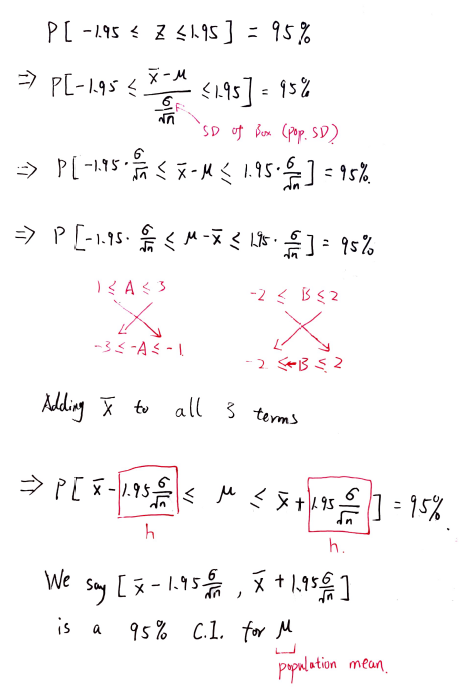 P[ -1.95 ≤ Z ≤ 1.95 ] = 95%
⇒ P[ -1.95 ≤ (x̄ - μ)/(σ/√n) ≤ 1.95 ] = 95%
SD of Box (pop. SD)
⇒ P[ -1.95 · σ/√n ≤ x̄ - μ ≤ 1.95 · σ/√n ] = 95%.
⇒ P[ -1.95 · σ/√n ≤ μ - x̄ ≤ 1.95 · σ/√n ] = 95%
1 ≤ A ≤ 3
-3 ≤ -A ≤ -1
-2 ≤ B ≤ 2
-2 ≤ -B ≤ 2
Adding x̄ to all 3 terms
⇒ P[ x̄ - 1.95 σ/√n ≤ μ ≤ x̄ + 1.95 σ/√n ] = 95%.
h h.
We say [ x̄ - 1.95 σ/√n , x̄ + 1.95 σ/√n ]
is a 95% C.I. for μ
population mean.